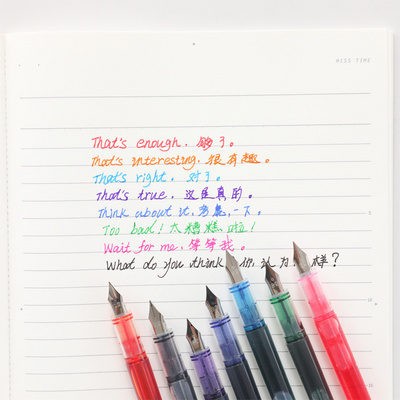 MISS TIME
That's enough, 够了。
That's interesting, 很有趣。
That's right, 对了。
That's true, 这是真的。
Think about it, 考虑一下。
Too bad! 太糟糕啦!
Wait for me, 等等我。
What do you think, 你认为 样?